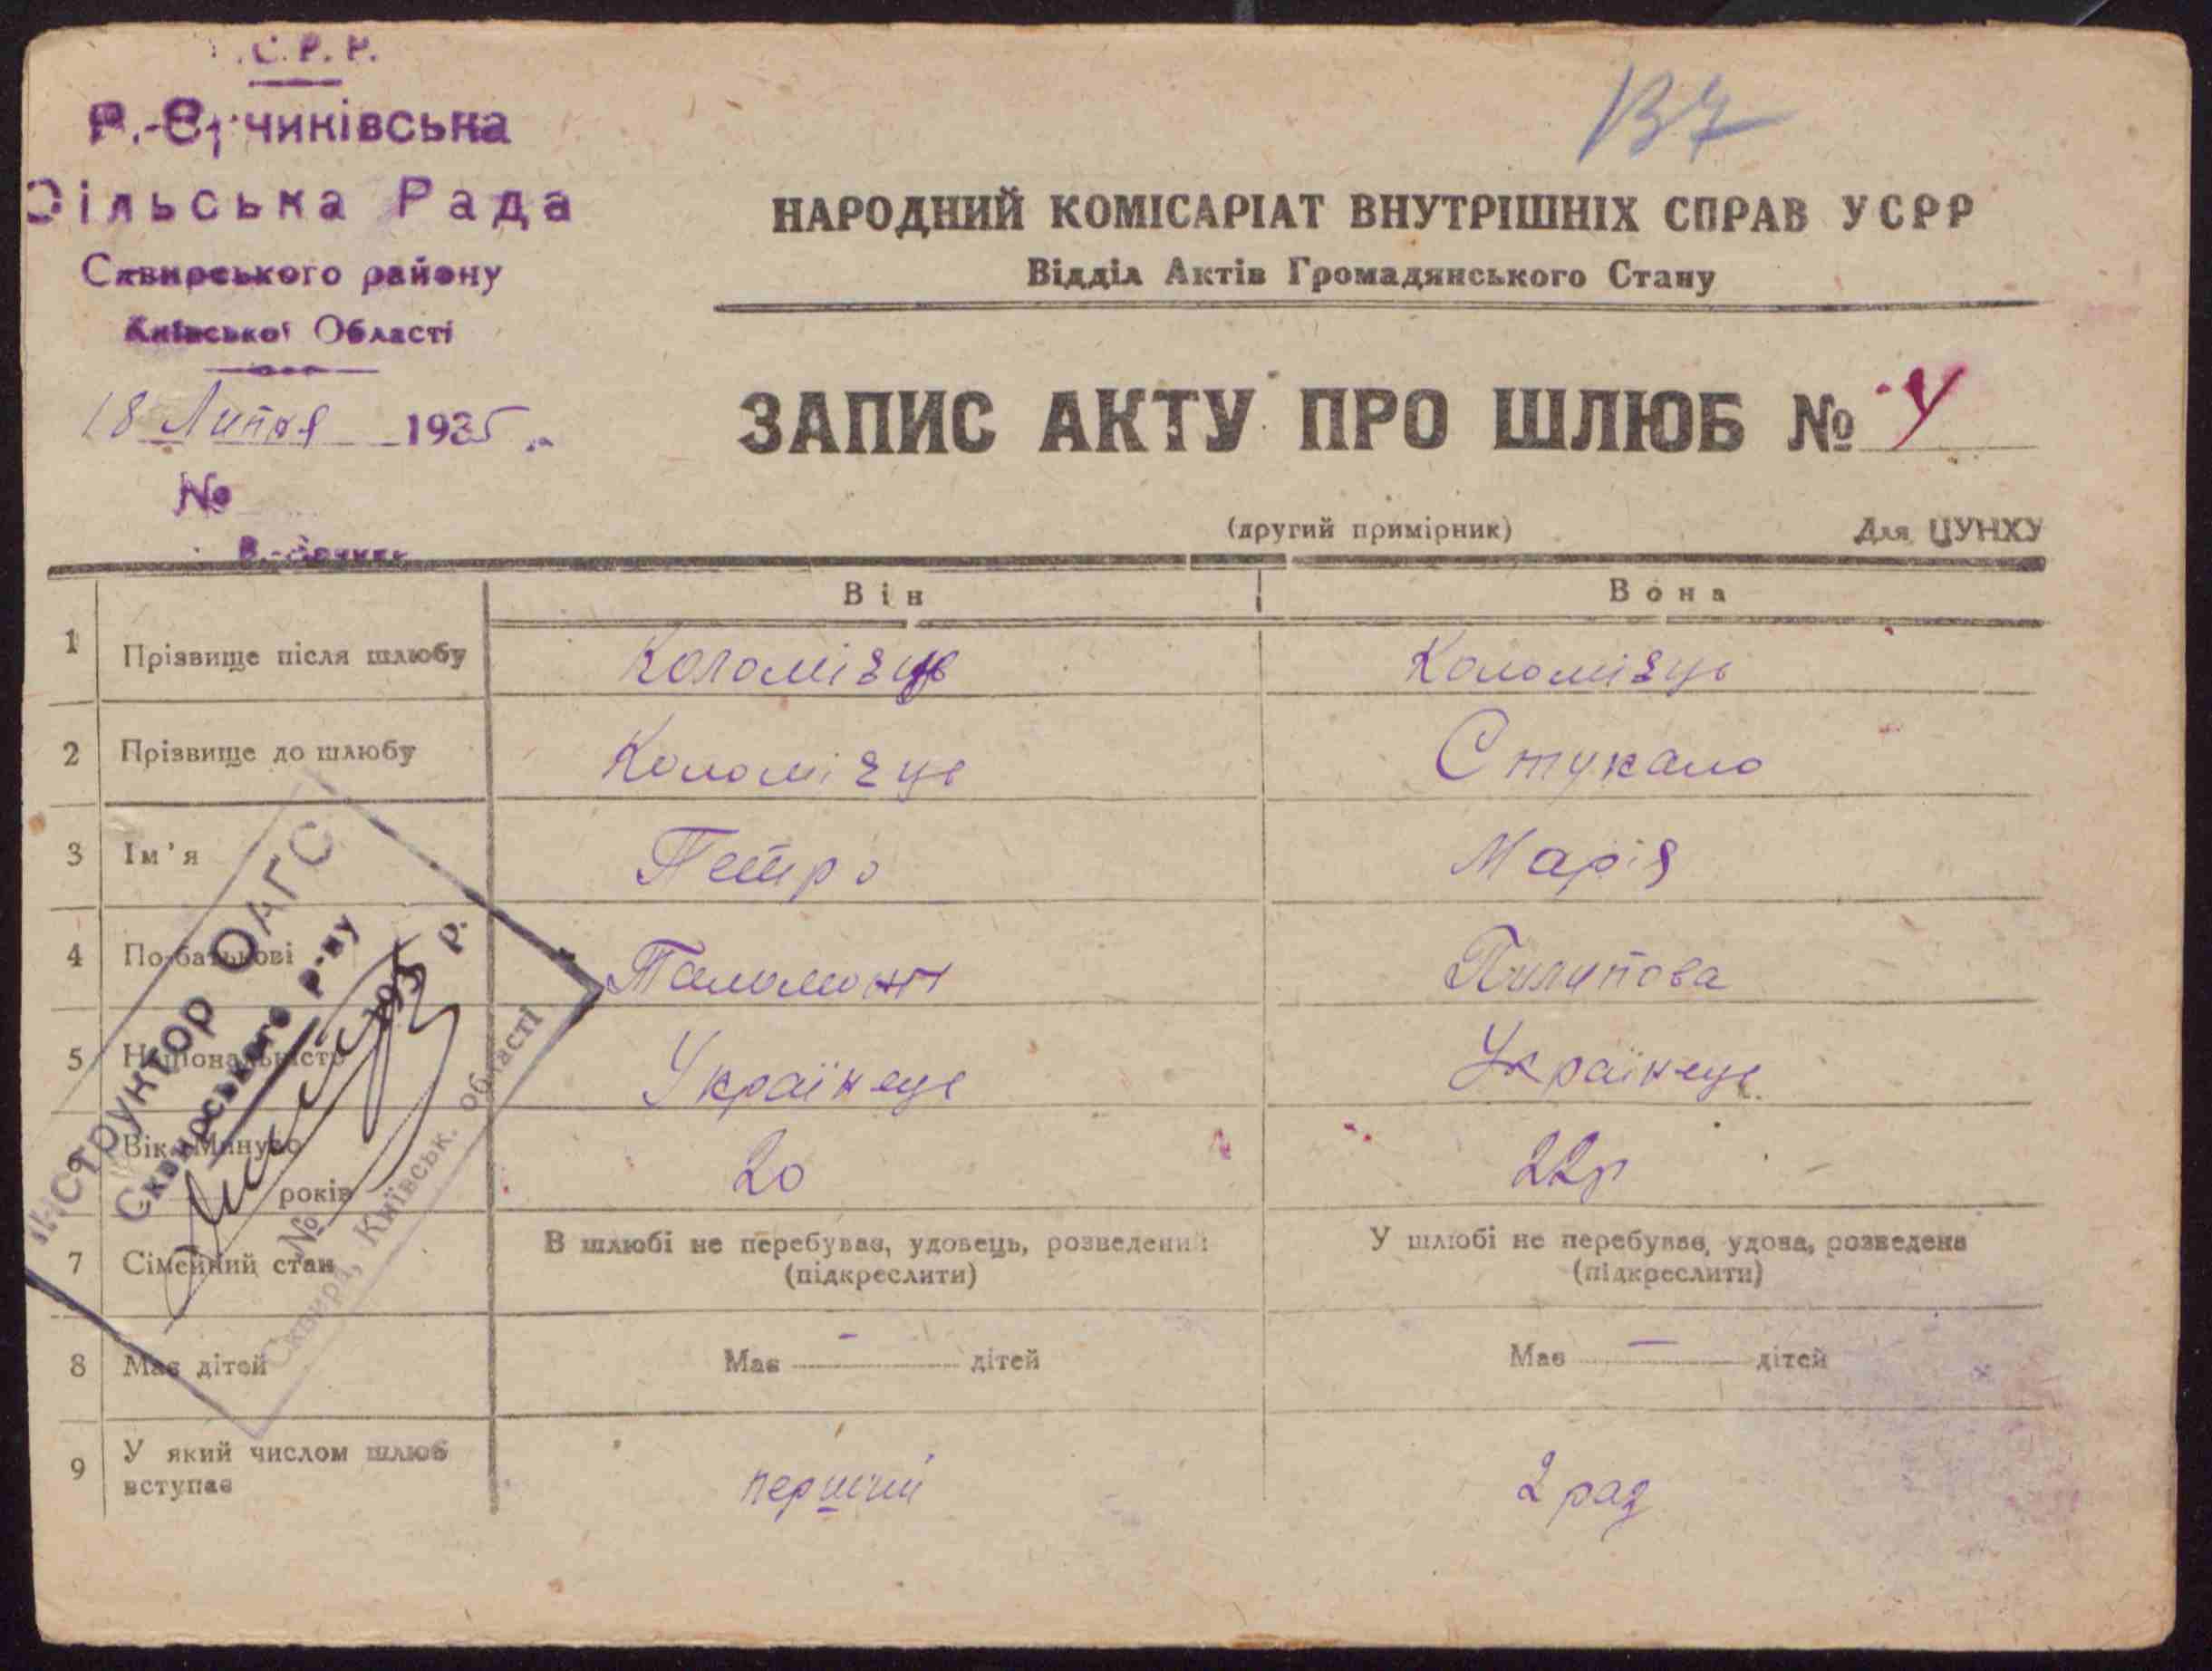 С.Р.Р.
чиківська
Сільська Рада
Сквирського району
Київської Області
18 Липня 1935
№
137
НАРОДНИЙ КОМІСАРІАТ ВНУТРІШНІХ СПРАВ УСРР
Відділ Актів Громадянського Стану
ЗАПИС АКТУ ПРО ШЛЮБ №
(другий примірник) Для ЦУНХУ
Він Вона
1 Прізвище після шлюбу Коломієць Коломієць
2 Прізвище до шлюбу Коломієць Стукало
3 Ім'я Петро Марія
4 По-батькові Пилипова
5 Національність Українець Українець
6 Вік. Минуло років 20 22р
7 Сімейний стан В шлюбі не перебував, удовець, розведений (підкреслити) У шлюбі не перебуває, удова, розведена (підкреслити)
8 Має дітей Має — дітей Має — дітей
9 У який числом шлюб вступає перший 2 раз
Інструктор ОАГС
Сквирського р-ну
193 р.
№
Сквира, Київськ. області